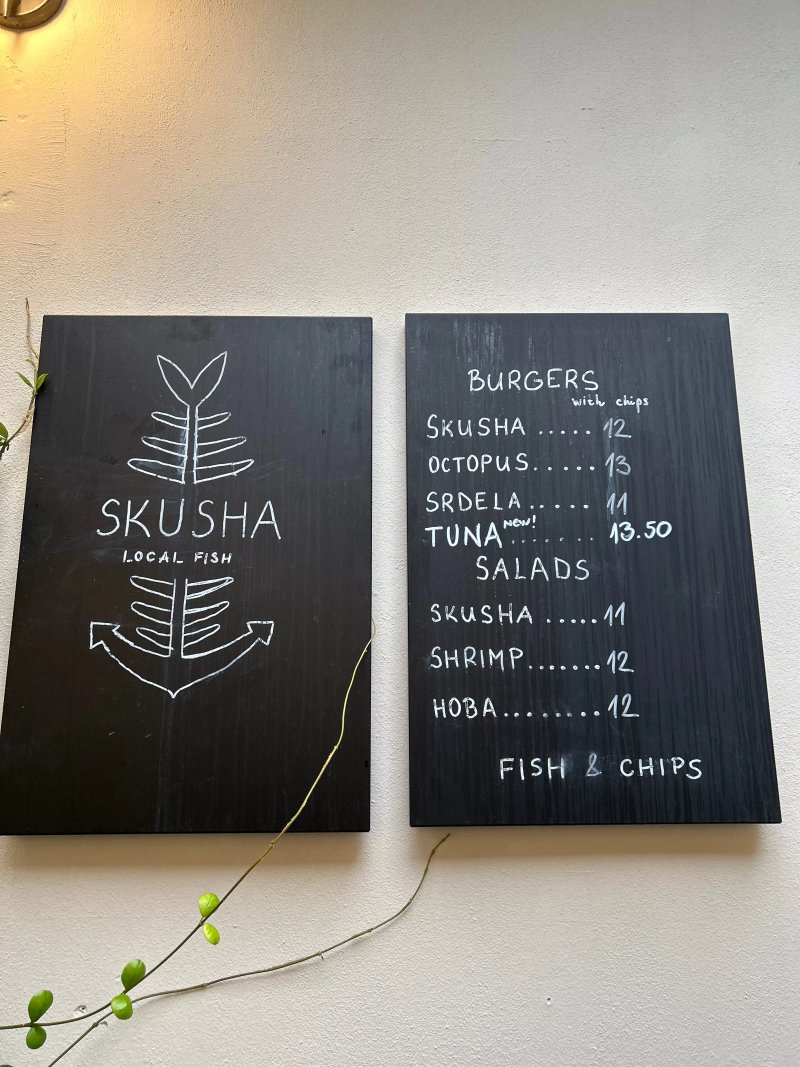 SKUSHA
LOCAL FISH
BURGERS
with chips
SKUSHA ..... 12
OCTOPUS...... 13
SRDELA ..... 11
TUNA NEW! ....... 13.50
SALADS
SKUSHA ..... 11
SHRIMP....... 12
HOBA........ 12
FISH & CHIPS